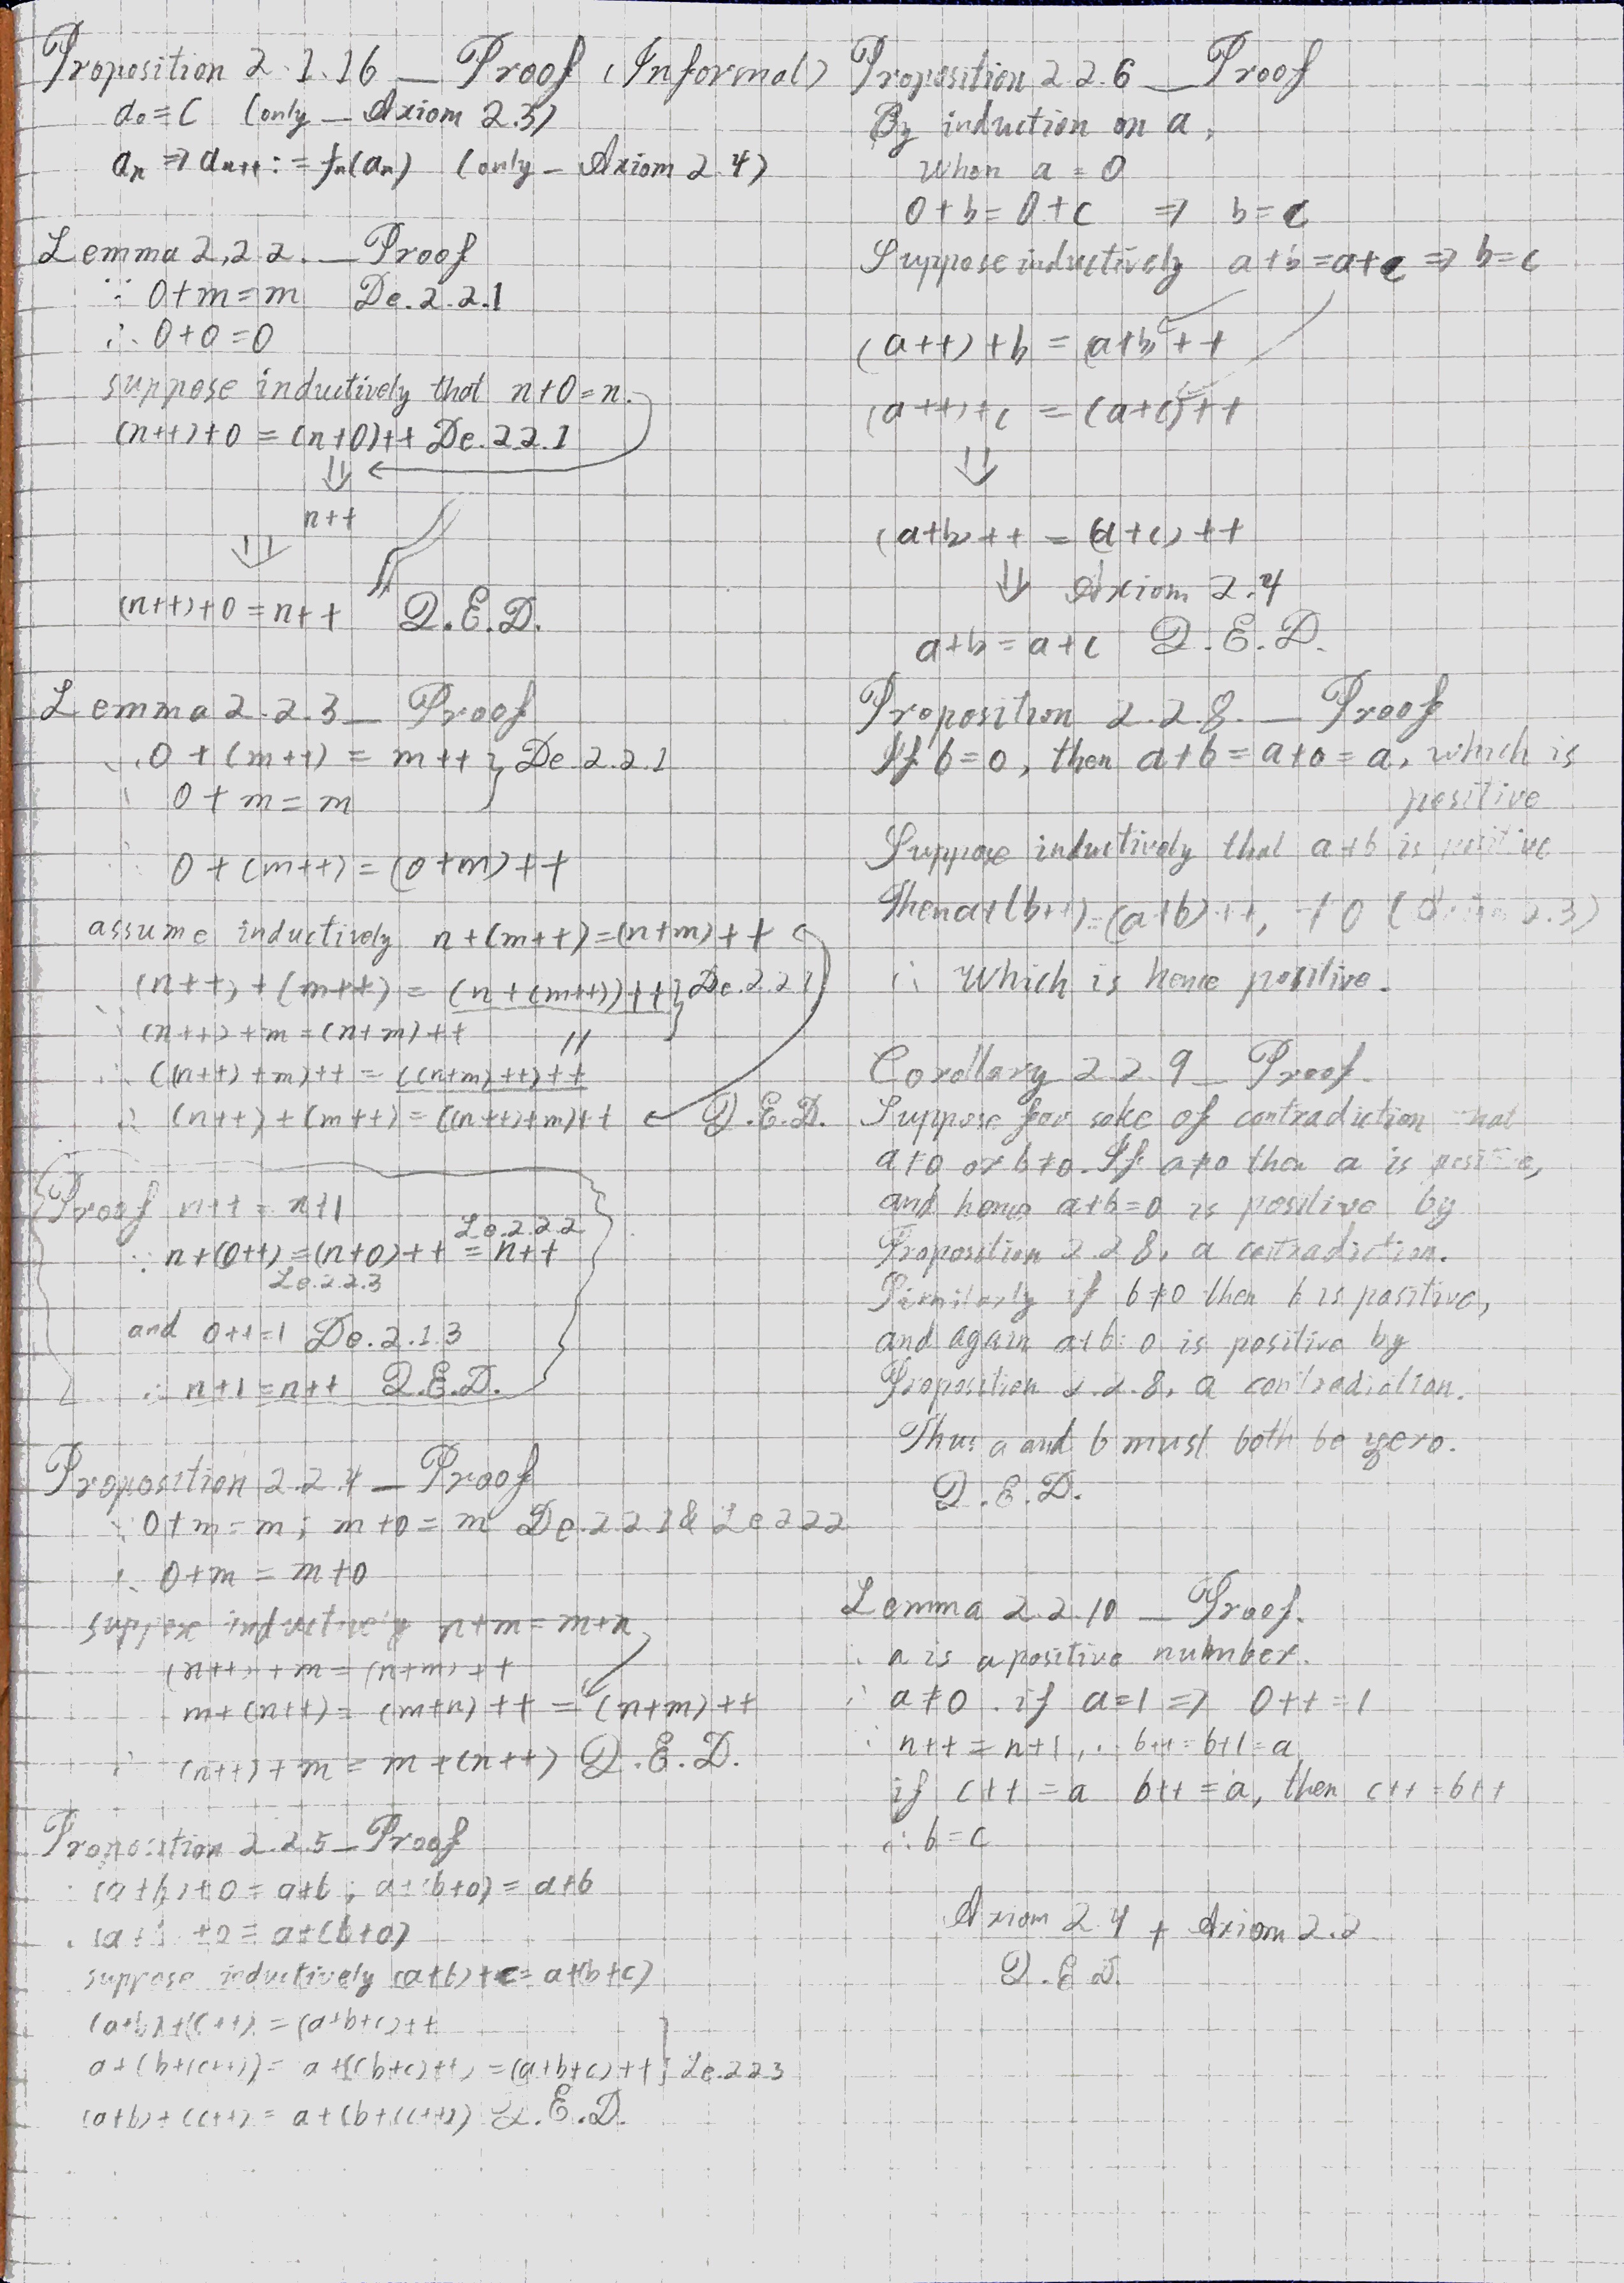 Proposition 2.1.16 — Proof (Informal)
a₀ = C (only — Axiom 2.3)
aₙ ⇒ aₙ₊₊ := fₙ(aₙ) (only — Axiom 2.4)
Lemma 2.2.2. — Proof
∵ 0+m=m De.2.2.1
∴ 0+0=0
suppose inductively that n+0=n.
(n++)+0 = (n+0)++ De.2.2.1
⇓
n++
⇓
(n++)+0 = n++ Q.E.D.
Lemma 2.2.3 — Proof
∵ 0+(m++) = m++ } De.2.2.1
0+m=m
∴ 0+(m++) = (0+m)++
assume inductively n+(m++)=(n+m)++
(n++)+(m++) = (n+(m++))++ } De.2.2.1
∵ (n++)+m=(n+m)++
∴ ((n++)+m)++ = ((n+m)++)++
∴ (n++)+(m++) = ((n++)+m)++ Q.E.D.
Proof n++ = n+1
Le.2.2.2
∵ n+(0++) = (n+0)++ = n++
Le.2.2.3
and 0++=1 De.2.1.3
∴ n+1=n++ Q.E.D.
Proposition 2.2.4 — Proof
∵ 0+m=m; m+0=m De.2.2.1& Le 2.2.2
∴ 0+m = m+0
suppose inductively n+m=m+n
(n++)+m=(n+m)++
m+(n++) = (m+n)++ = (n+m)++
∴ (n++)+m = m+(n++) Q.E.D.
Proposition 2.2.5 — Proof
∵ (a+b)+0 = a+b; a+(b+0) = a+b
∴ +0 = a+(b+0)
suppose inductively (a+b)+c=a+(b+c)
(a+b)+(c++) = (a+b+c)++
a+(b+(c++)) = a+((b+c)++) = (a+b+c)++ ] Le.2.2.3
(a+b)+(c++) = a+(b+(c++)) Q.E.D.
Proposition 2.2.6 — Proof
By induction on a,
When a = 0
0+b = 0+c ⇒ b=c
Suppose inductively a+b=a+c ⇒ b=c
(a++)+b = (a+b)++
(a++)+c = (a+c)++
⇓
(a+b)++ = (a+c)++
⇓ Axiom 2.4
a+b=a+c Q.E.D.
Proposition 2.2.8. — Proof
If b=0, then a+b=a+0=a, which is
positive
Suppose inductively that a+b is positive
Then a+(b++)=(a+b)++, ≠0 ( 2.3)
∴ Which is hence positive.
Corollary 2.2.9 — Proof.
Suppose for sake of contradiction that
a≠0 or b≠0. If a≠0 then a is positive,
and hence a+b=0 is positive by
Proposition 2.2.8, a contradiction.
Similarly if b≠0 then b is positive,
and again a+b=0 is positive by
Proposition 2.2.8, a contradiction.
Thus a and b must both be zero.
Q.E.D.
Lemma 2.2.10 — Proof.
∵ a is a positive number.
∴ a≠0. if a=1 ⇒ 0++=1
∵ n++=n+1, ∴ b++=b+1=a
if c++=a b++=a, then c++=b++
∴ b=c
Axiom 2.4 + Axiom 2.2
Q.E.D.